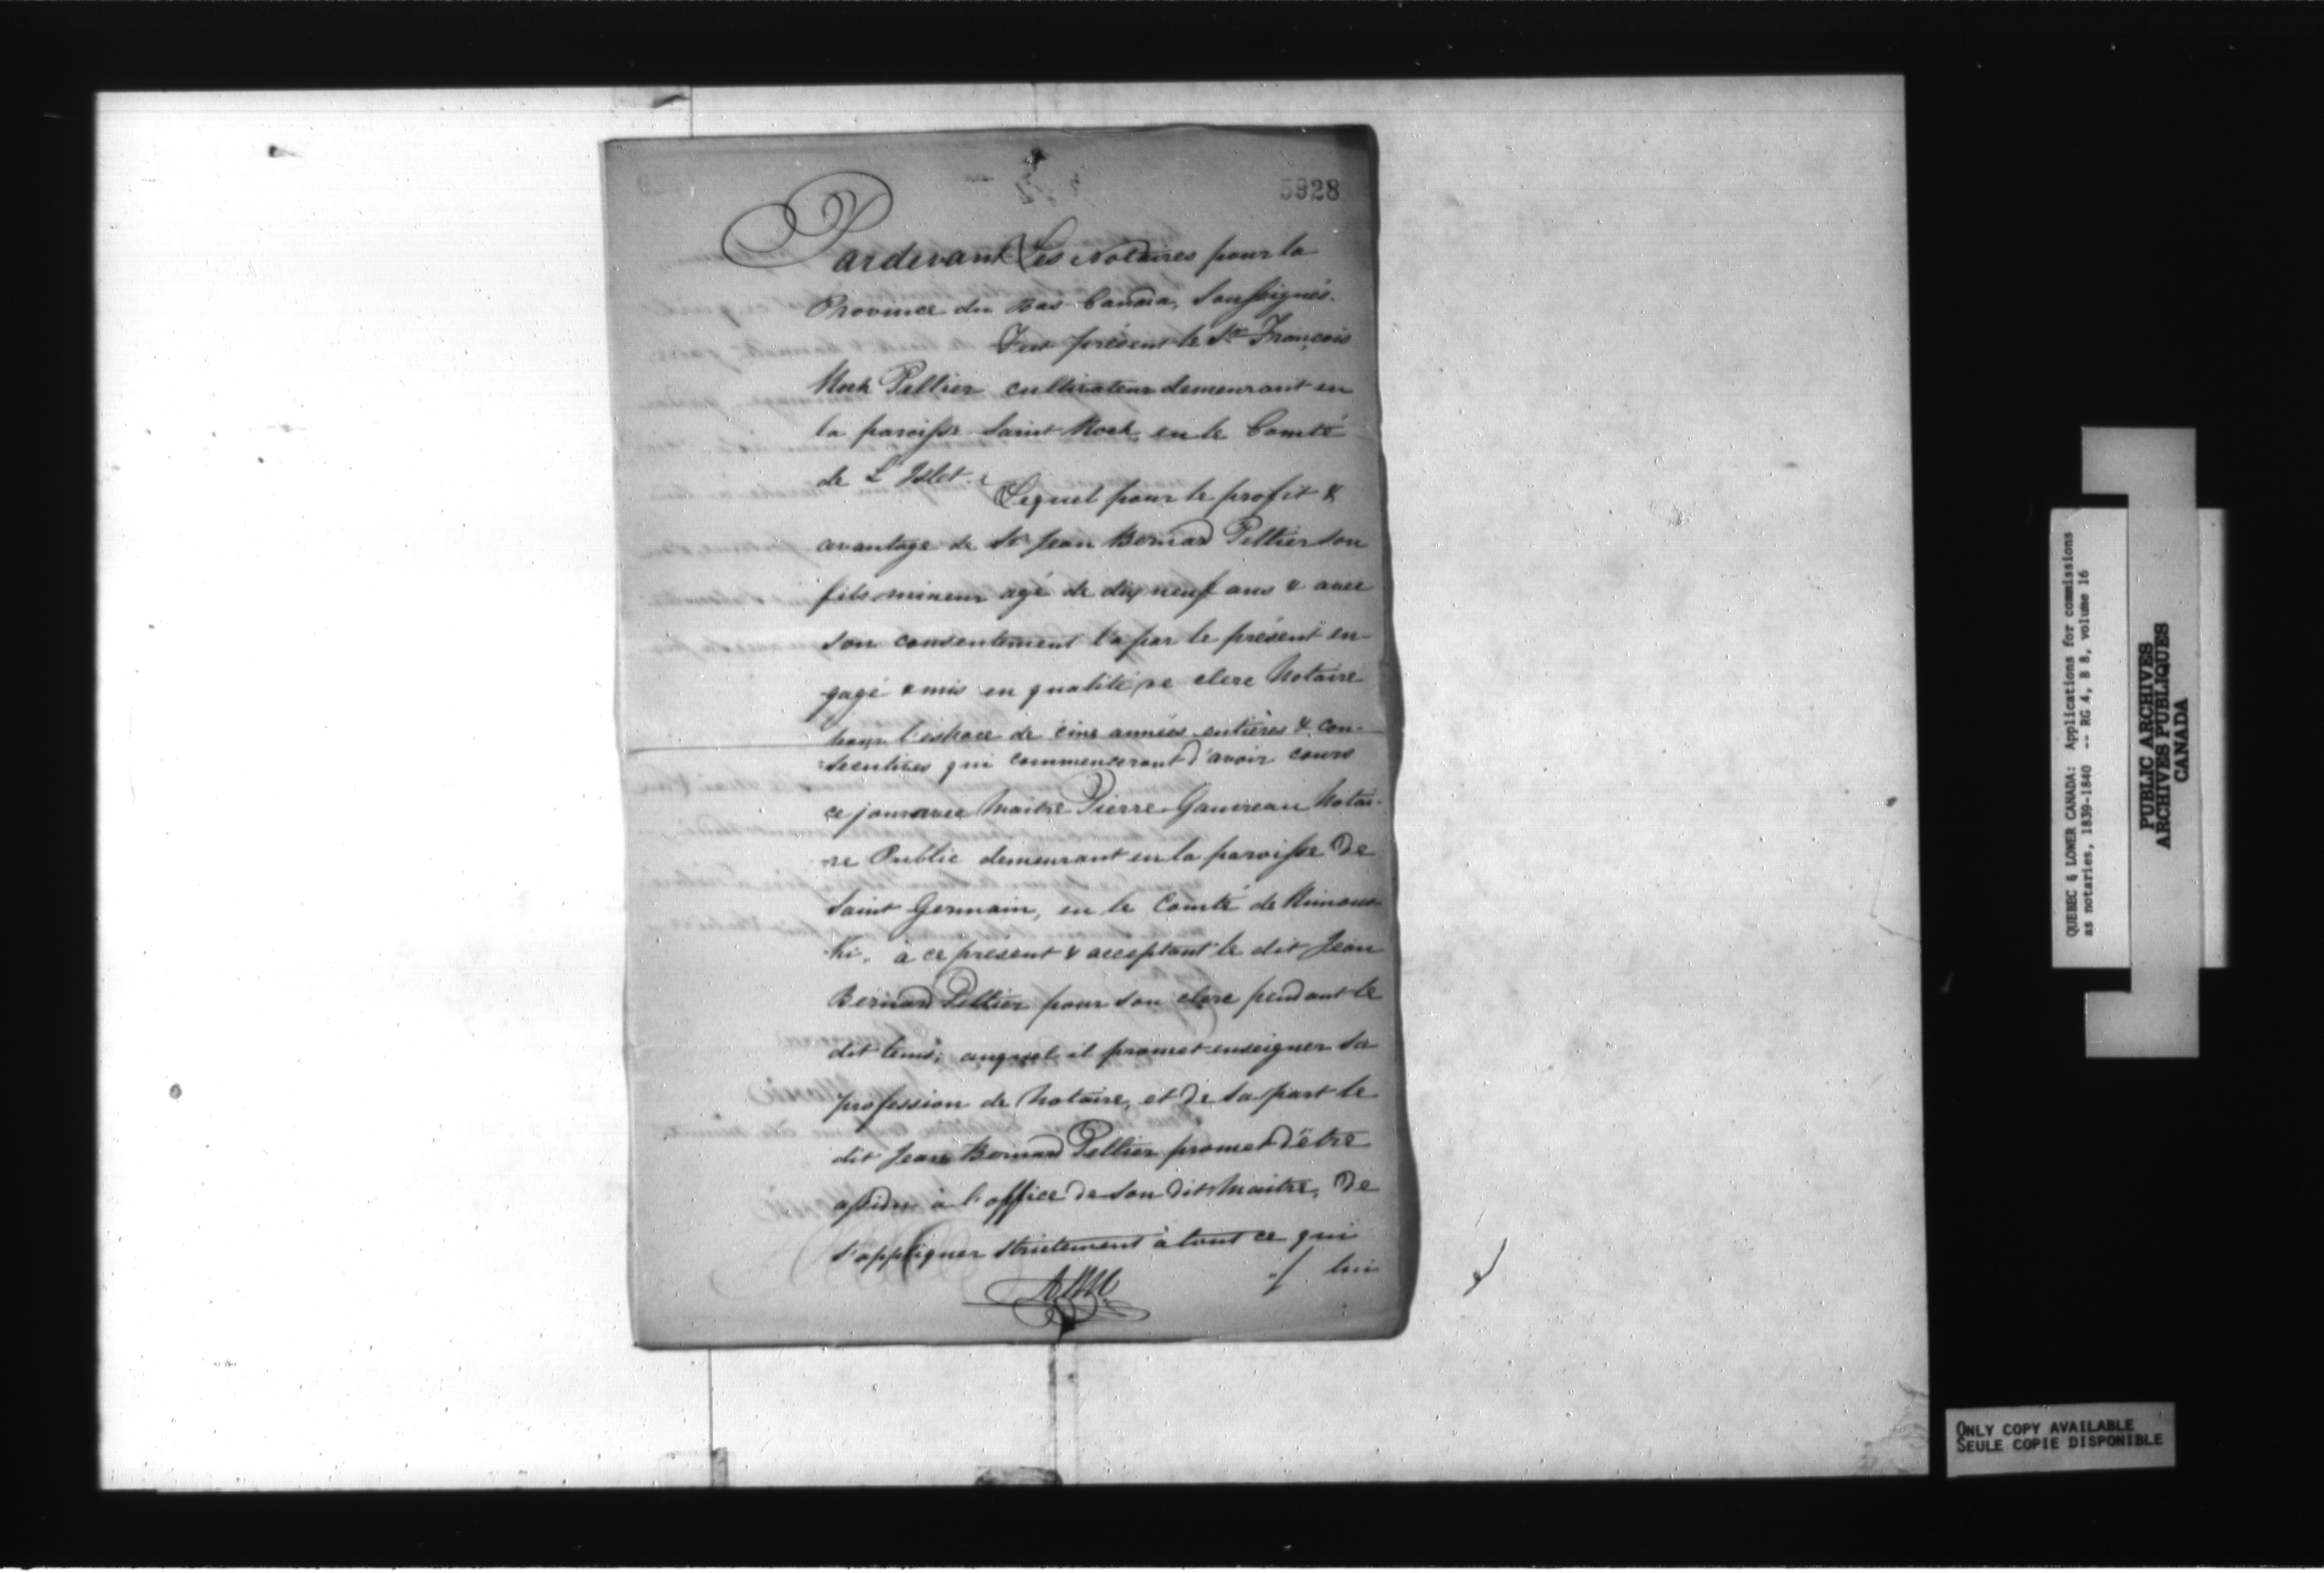 5928
Pardevant Les Notaires pour la
Province du Bas Canada, Soussignés.
Fut présent le Sr. François
Roch Peltier cultivateur demeurant en
la paroisse Saint Roch, en le Comté
de L'Islet.
Lequel pour le profit &
avantage de Sr Jean Bernard Peltier son
fils mineur agé de dix neuf ans & avec
son consentement l'a par le présent en-
gagé & mis en qualité de clerc Notaire
pour l'espace de cinq années entières & con-
sécutives qui commenceront d'avoir cours
ce jour avec Maitre Pierre Gauvreau Notai-
re Public demeurant en la paroisse de
Saint Germain, en le Comté de Rimous-
ki. à ce présent & acceptant le dit Jean
Bernard Peltier pour son clerc pendant le
dit tems; auquel il promet enseigner sa
profession de Notaire, et de sa part le
dit Jean Bernard Peltier promet d'être
assidu à l'office de son dit Maitre, de
s'appliquer strictement à tout ce qui
lui
QUEBEC & LOWER CANADA: Applications for commissions
as notaries, 1839-1840 -- RG 4, B 8, volume 16
PUBLIC ARCHIVES
ARCHIVES PUBLIQUES
CANADA
ONLY COPY AVAILABLE
SEULE COPIE DISPONIBLE